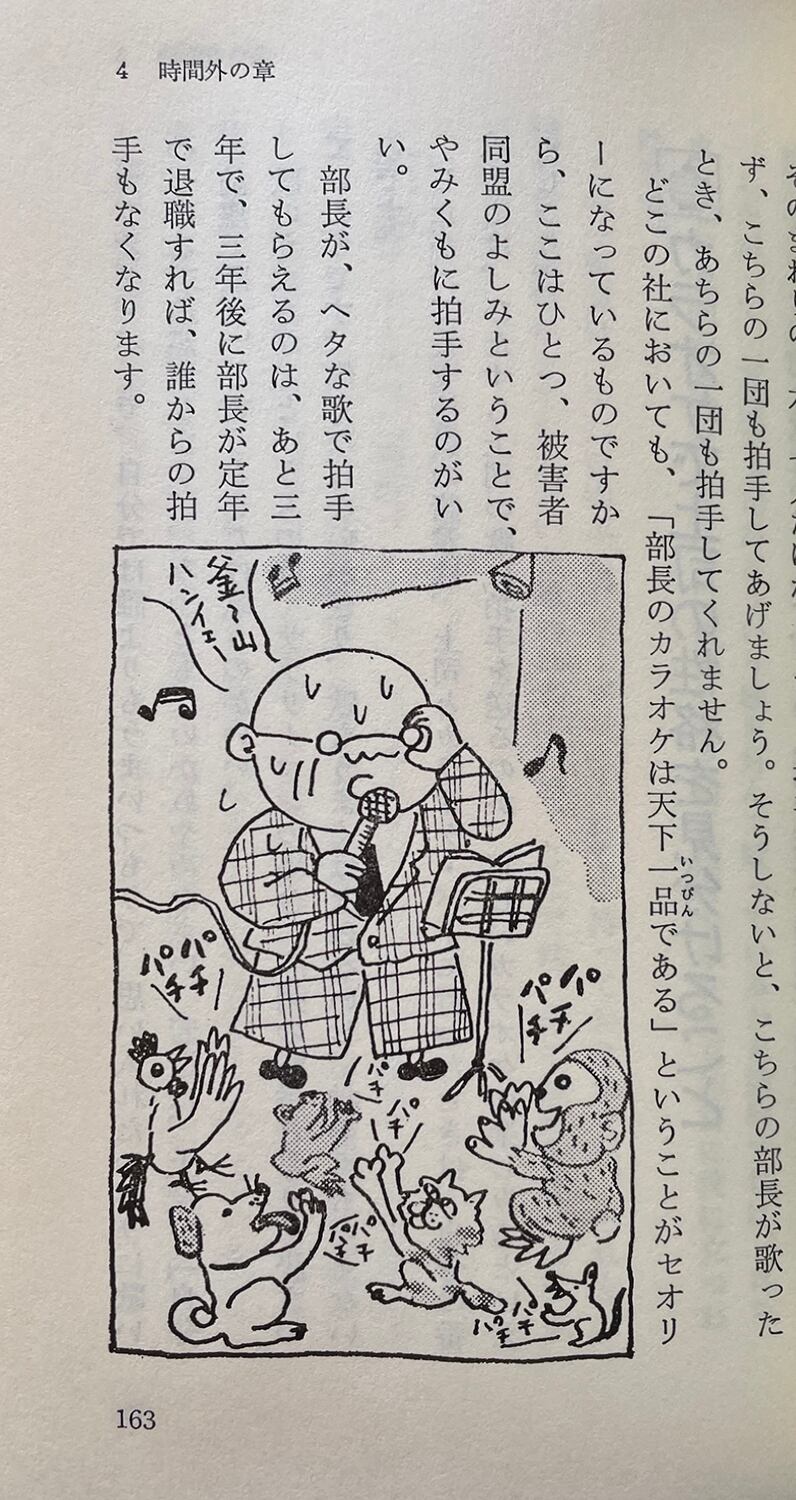 4　時間外の章
そのまわりの
ず、こちらの一団も拍手してあげましょう。そうしないと、こちらの部長が歌った
とき、あちらの一団も拍手してくれません。
どこの社においても、「部長のカラオケは天下一品である」ということがセオリ
いつぴん
ーになっているものですか
ら、ここはひとつ、被害者
同盟のよしみということで、
やみくもに拍手するのがい
い。
部長が、ヘタな歌で拍手
してもらえるのは、あと三
年で、三年後に部長が定年
で退職すれば、誰からの拍
手もなくなります。
釜〜山
ハンイェー
パチパチ
パチパチ
パチ
パチ
パチパチ
パチパチ
163